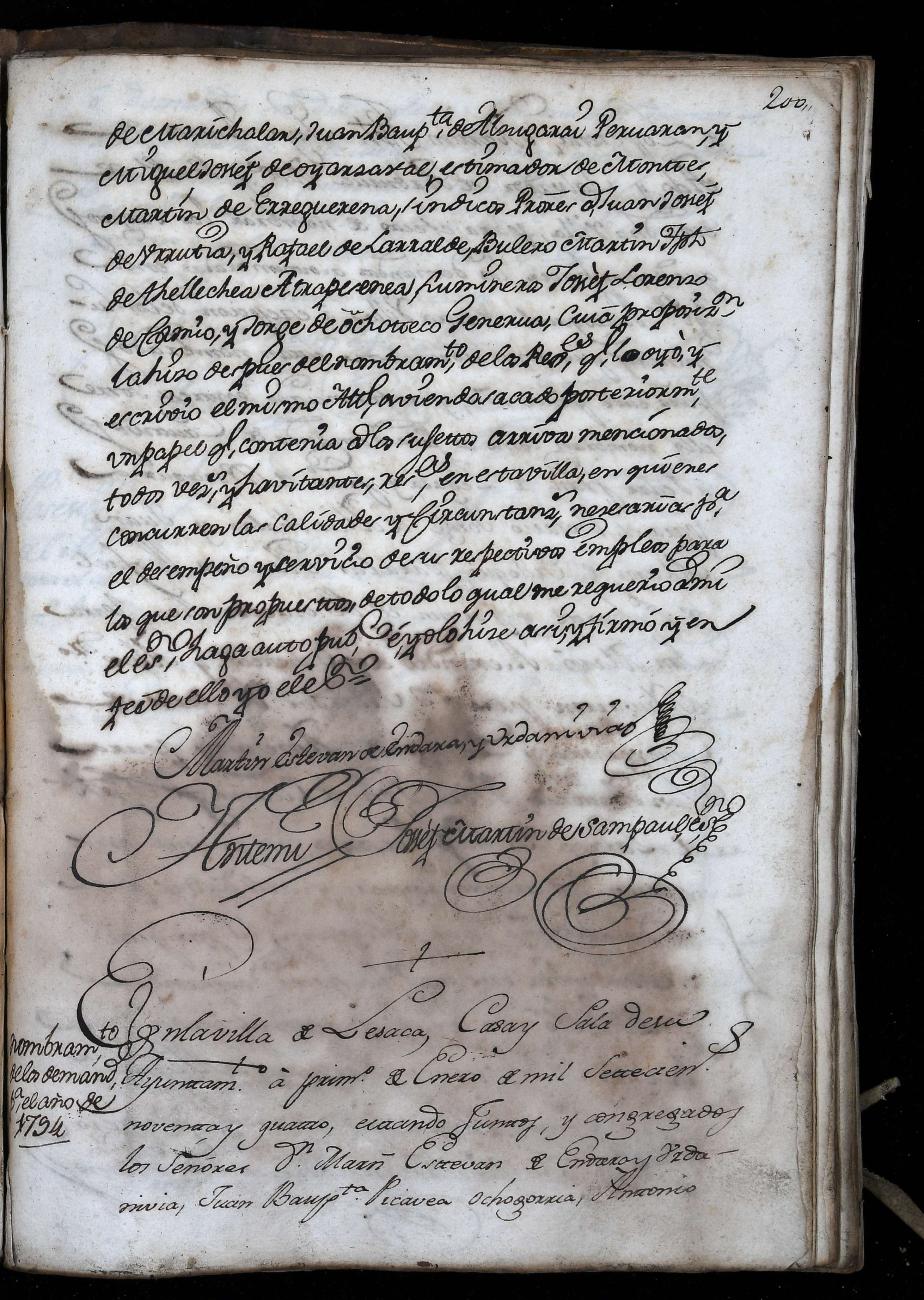 200,,
de Marichalar, Juan Baupta. de Almgarai Peruaran, y
Miguel Josẽf de oyarzaval, estimador de Montes,
Martín de Erreguerena, sindicos Prores. d Juan Josẽf
de Vrrutia, y Rafael de Larralde, Bulero Martín Jph
de Thellechea Atraperenea, suminero Josẽf Lorenzo
de Camio, y Jorge de ochoteco Generua, Cuia proposizon
la hizo despues del nombramto. de los Reses, ql lo oyò, y
escrivio el mismo Alle, aviendo sacado posteriormte.
vn papel ql, contenia a los sujettos arriva mencionados,
todos vezs, y havitantes, reses, en esta villa, en quienes
concurren las Calidades y Circunstanzs, nesesarias pa.
el desempeño y servicio de sus respectivos Empleos para
los que son propuestos, de todo lo qual me requerio a mi
el esno, haga auto puco, é, yo lo hize assi, y firmó y en
fee de ello yo el esno
Martin Estevan de Endara, y Vrdaniviao
Antemi Josẽf Martin de Sampaul, esno
nombramto
de los demand
pa, el año de
1794
En la villa de Lesaca, Casa y Sala de su
Ayuntamto. à primo. de Enero de mil Setecien.s
noventa y quatro, estando Juntos, y congregados
los Señores Dn. Marn Estevan de Endara y Vrda-
nivia, Juan Baupta Picavea Ochogorria, Antonio